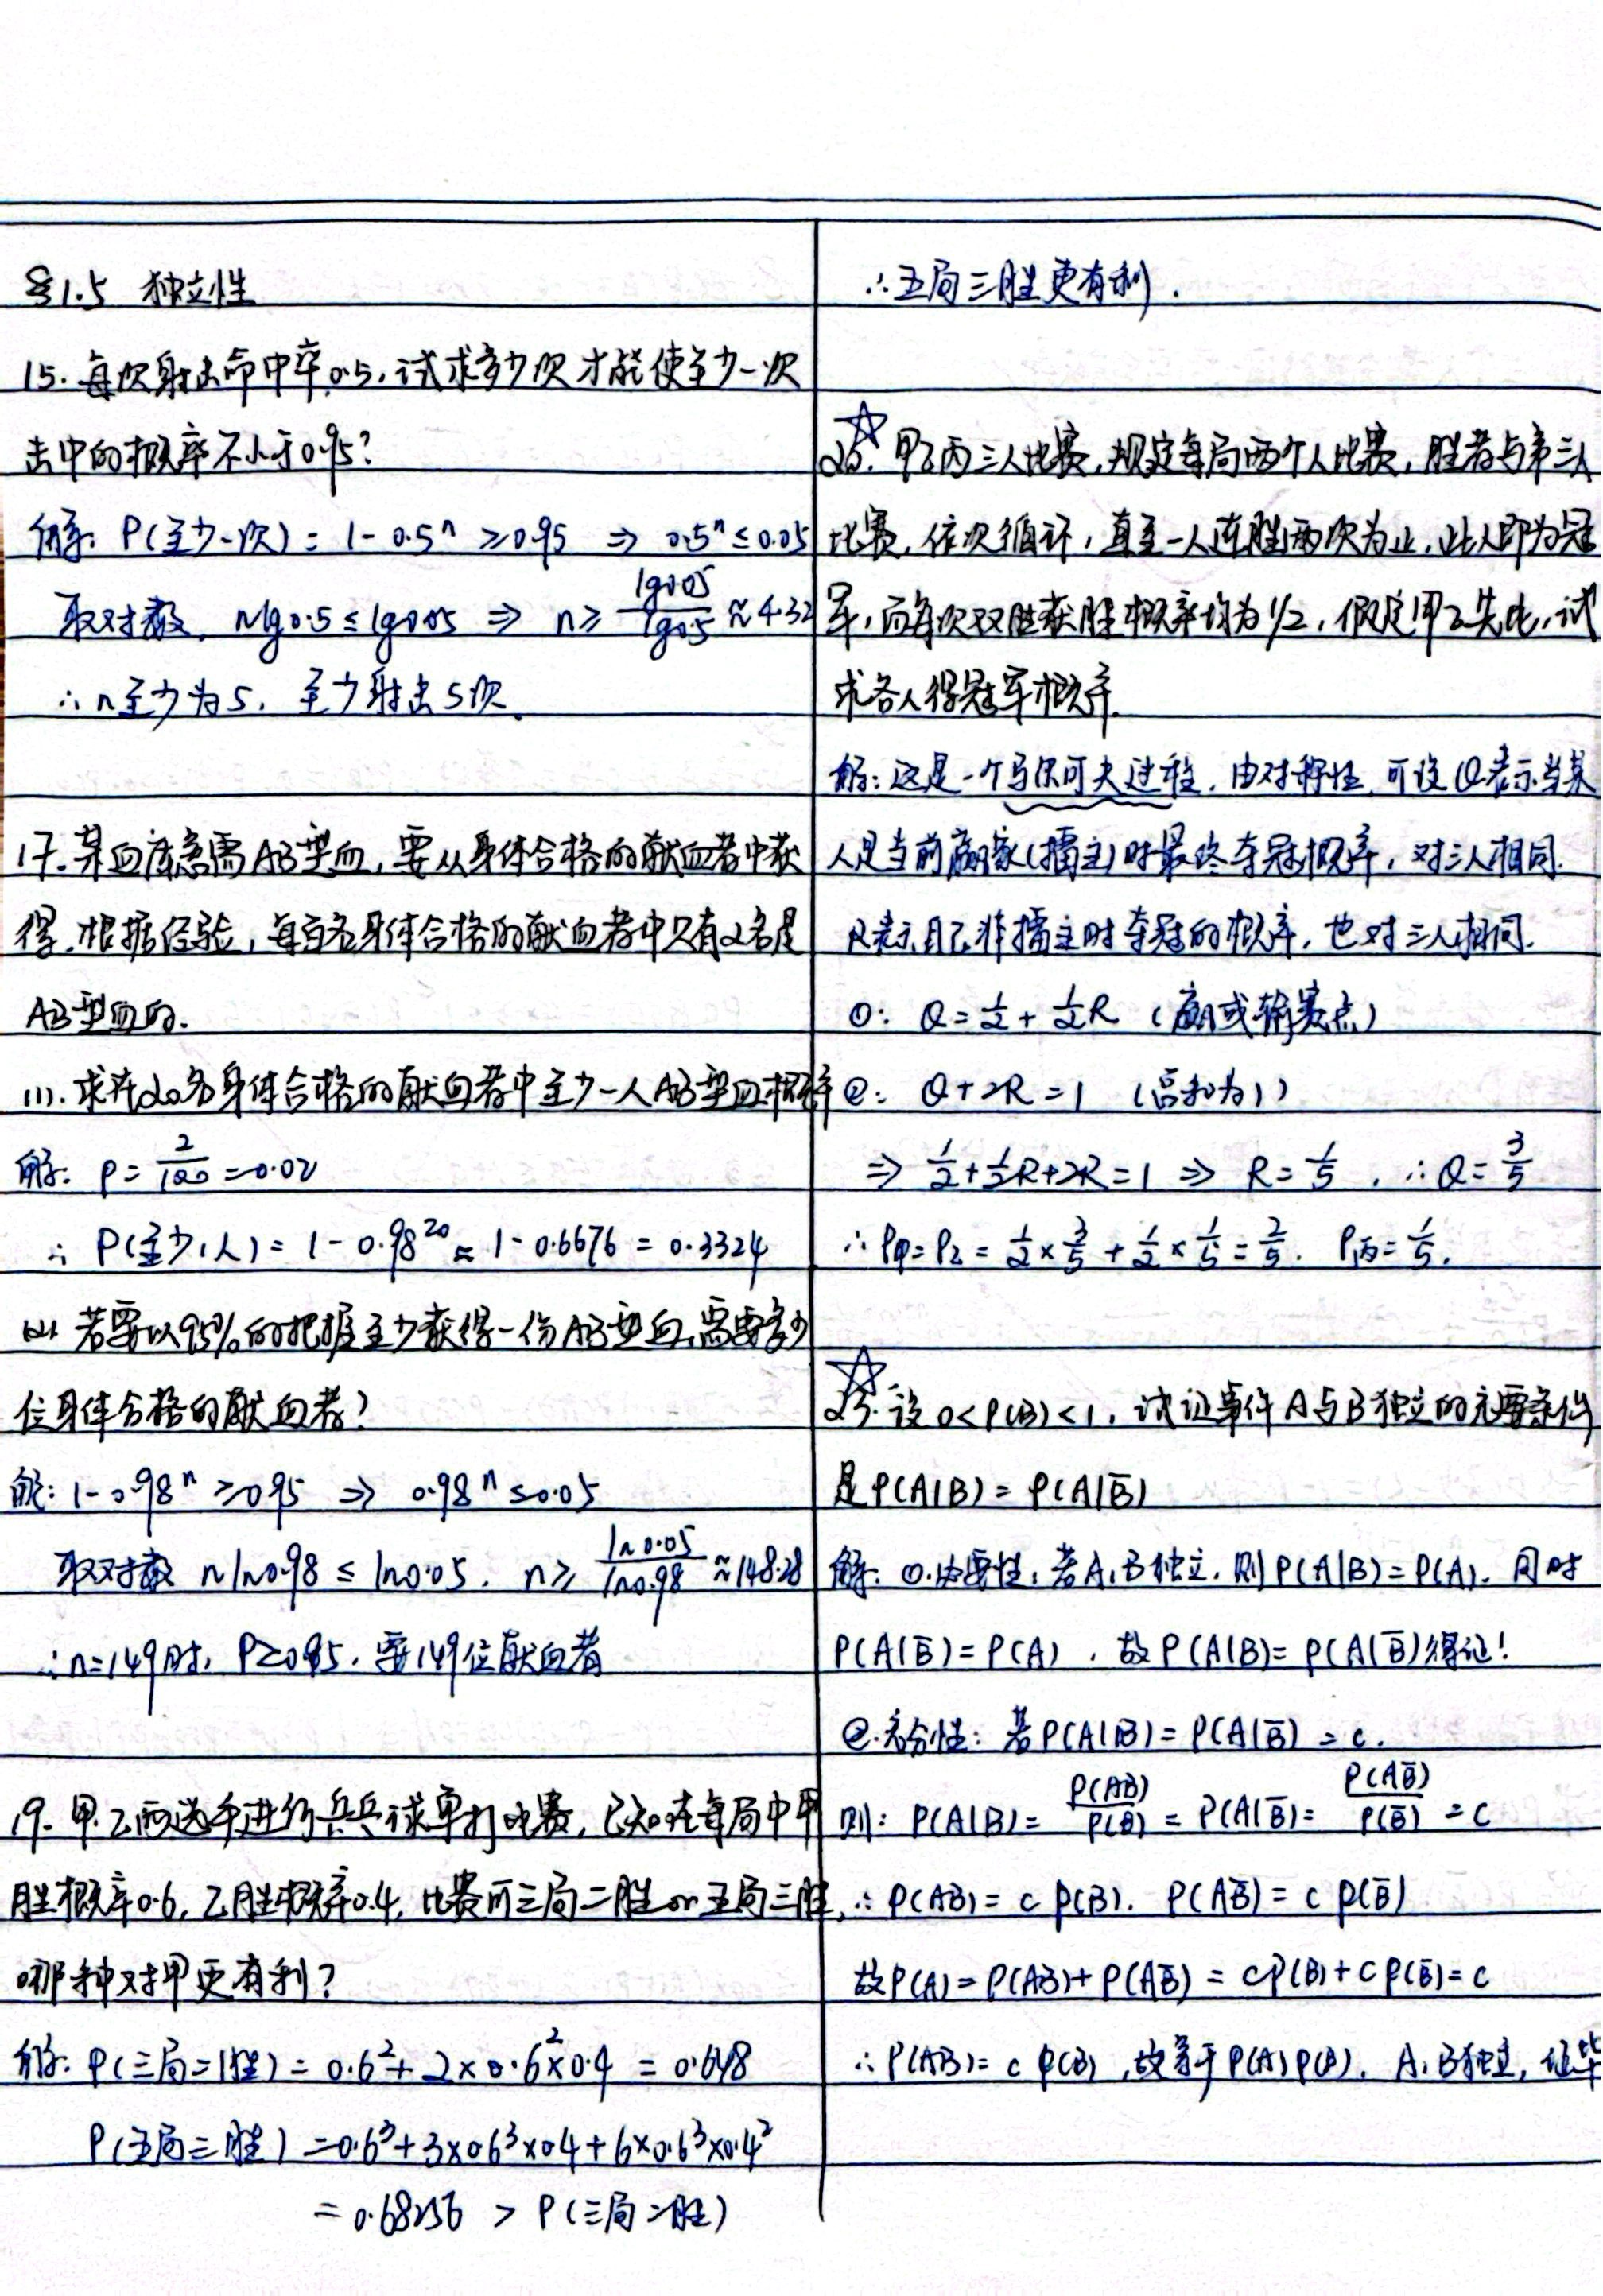 §1.5 独立性
15. 每次射击命中率0.5,试求多少次才能使至少一次
击中的概率不小于0.95?
解: P(至少一次) = 1-0.5ⁿ ≥0.95 ⇒ 0.5ⁿ ≤ 0.05
取对数, nlg0.5 ≤ lg0.05 ⇒ n≥ lg0.05/lg0.5 ≈4.32
∴n至少为5, 至少射击5次.
17. 某血库急需AB型血,要从身体合格的献血者中获
得,根据经验,每百名身体合格的献血者中只有2名是
AB型血的.
(1). 求在20名身体合格的献血者中至少一人AB型血概率
解: p= 2/100 =0.02
∴ P(至少1人) = 1-0.98²⁰ ≈ 1-0.6676 = 0.3324
(2) 若要以95%的把握至少获得一份AB型血,需要多少
位身体合格的献血者?
解: 1-0.98ⁿ ≥0.95 ⇒ 0.98ⁿ ≤0.05
取对数 nln0.98 ≤ ln0.05. n≥ ln0.05/ln0.98 ≈148.28
∴n=149时, P≥0.95, 要149位献血者
19. 甲.乙两选手进行乒乓球单打比赛,已知在每局中甲
胜概率0.6,乙胜概率0.4,比赛可三局二胜or五局三胜,
哪种对甲更有利?
解: P(三局二胜) = 0.6²+2×0.6²×0.4 = 0.648
P(五局三胜) =0.6³+3×0.6³×0.4+6×0.6³×0.4²
=0.68256 > P(三局二胜)
∴五局三胜更有利.
☆
20. 甲乙丙三人比赛,规定每局两个人比赛,胜者与第三人
比赛,依次循环,直至一人连胜两次为止,此人即为冠
军,而每次双胜获胜概率均为1/2,假定甲乙先比,试
求各人得冠军概率.
解:这是一个马尔可夫过程,由对称性,可设Q表示当某
人是当前赢家(擂主)时最终夺冠概率,对三人相同.
R表示自己非擂主时夺冠的概率,也对三人相同.
①: Q=1/2+1/2R (赢或输赛点)
②: Q+2R=1 (总和为1)
⇒ 1/2+1/2R+2R=1 ⇒ R=1/5 , ∴Q=3/5
∴P甲=P乙=1/2×3/5+1/2×1/5=2/5. P丙=1/5.
☆
23. 设0<P(B)<1,试证事件A与B独立的充要条件
是P(A|B)=P(A|B̅)
解: ①.必要性:若A,B独立,则P(A|B)=P(A). 同时
P(A|B̅)=P(A) ,故P(A|B)=P(A|B̅)得证!
②.充分性:若P(A|B)=P(A|B̅)=c.
则: P(A|B)= P(AB)/P(B) = P(A|B̅)= P(AB̅)/P(B̅) =c
∴P(AB)=c P(B). P(AB̅)=c P(B̅)
故P(A)=P(AB)+P(AB̅)=cP(B)+cP(B̅)=c
∴P(AB)=c P(B) ,故等于P(A)P(B). A,B独立,证毕